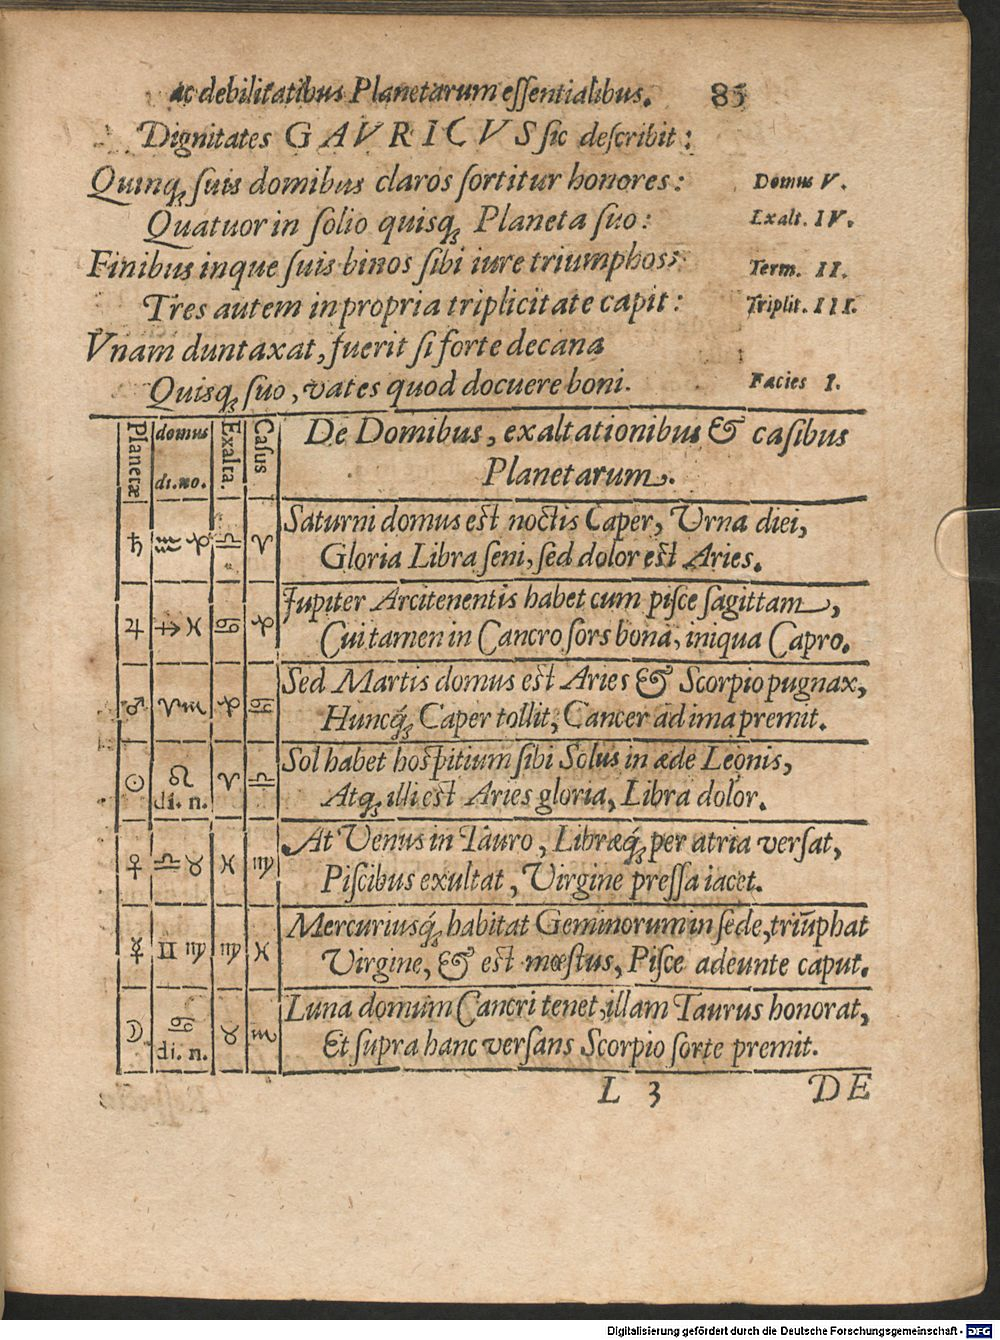 ac debilitatibus Planetarum essentialibus. 85
Dignitates GAVRICVS sic describit:
Quinq; suis domibus claros sortitur honores: Domus V.
Quatuor in solio quisq; Planeta suo: Exalt. IV.
Finibus inque suis binos sibi iure triumphos: Term. II.
Tres autem in propria triplicitate capit: Triplit. III.
Vnam duntaxat, fuerit si forte decana
Quisq; suo, vates quod docuere boni. Facies I.
Planetæ domus di. no. Exalta. Casus De Domibus, exaltationibus & casibus
Planetarum.
♄ ♒ ♑ ♎ ♈ Saturni domus est noctis Caper, Urna diei,
Gloria Libra seni, sed dolor est Aries.
♃ ♐ ♓ ♋ ♑ Jupiter Arcitenentis habet cum pisce sagittam,
Cui tamen in Cancro sors bona, iniqua Capro.
♂ ♈ ♏ ♑ ♋ Sed Martis domus est Aries & Scorpio pugnax,
Huncq́; Caper tollit, Cancer ad ima premit.
☉ ♌ di. n. ♈ ♎ Sol habet hospitium sibi Solus in æde Leonis,
Atq; illi est Aries gloria, Libra dolor.
♀ ♎ ♉ ♓ ♍ At Venus in Tauro, Libræq́; per atria versat,
Piscibus exultat, Virgine pressa iacet.
☿ ♊ ♍ ♍ ♓ Mercuriusq́; habitat Geminorum in sede, triũphat
Virgine, & est mœstus, Pisce adeunte caput.
☽ ♋ di. n. ♉ ♏ Luna domum Cancri tenet, illam Taurus honorat,
Et supra hanc versans Scorpio sorte premit.
L 3 DE
Digitalisierung gefördert durch die Deutsche Forschungsgemeinschaft - DFG